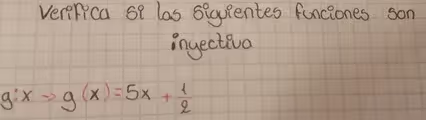 Verifica si las siguientes funciones son
inyectiva
g:x → g(x) = 5x + 1/2